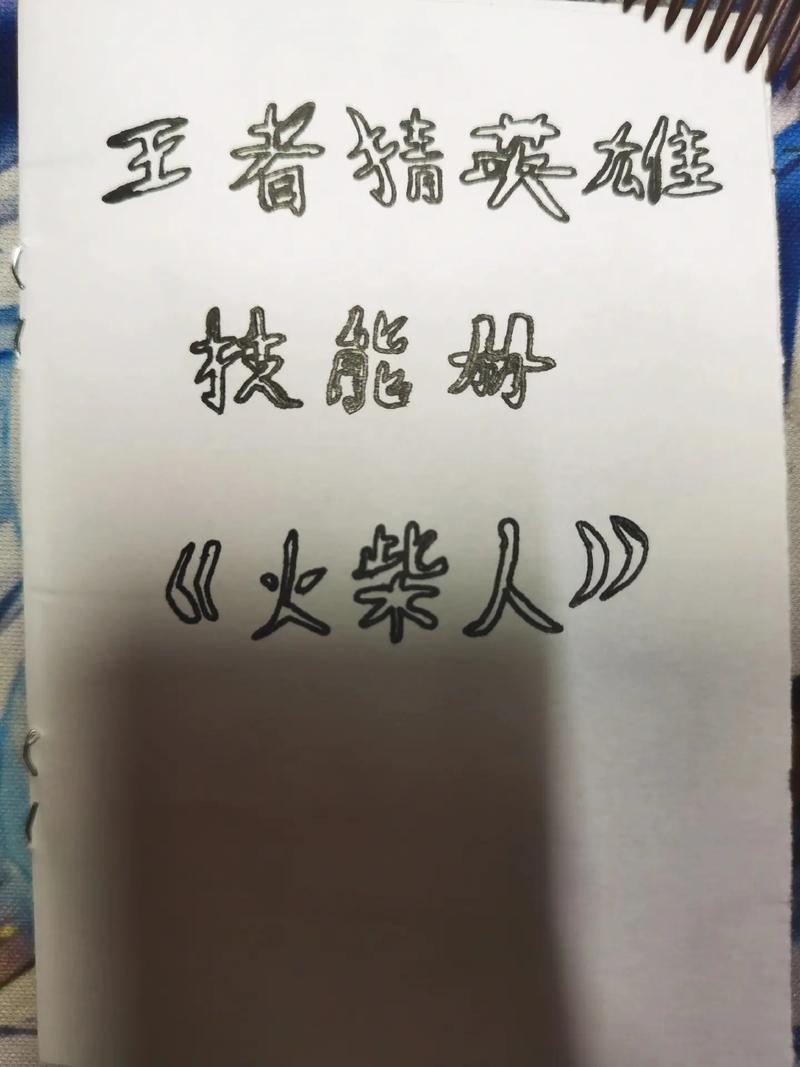 王者猜英雄
技能册
《火柴人》